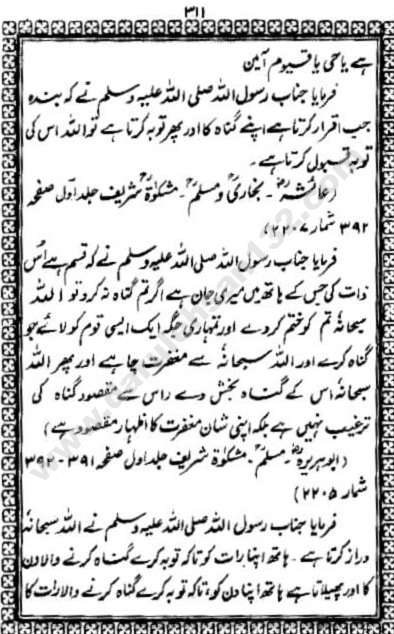 ۳۱۱
ہے یا حی یا قیوم آمین
فرمایا جناب رسول اللہ صلی اللہ علیہ وسلم نے کہ بندہ
جب اقرار کرتا ہے اپنے گناہ کا اور پھر توبہ کرتا ہے تو اللہ اس کی
توبہ قبول کرتا ہے۔
(عائشہؓ۔ بخاریؒ و مسلمؒ۔ مشکوٰۃ شریف جلد اول صفحہ
۳۹۲ شمار ۲۲۰۷)
فرمایا جناب رسول اللہ صلی اللہ علیہ وسلم نے کہ قسم ہے اُس
ذات کی جس کے ہاتھ میں میری جان ہے اگر تم گناہ نہ کرو تو اللہ
سبحانہٗ تم کو ختم کر دے اور تمہاری جگہ ایک ایسی قوم کو لائے جو
گناہ کرے اور اللہ سبحانہٗ سے مغفرت چاہے اور پھر اللہ
سبحانہٗ اس کے گناہ بخش دے (اس سے مقصود گناہ کی
ترغیب نہیں ہے بلکہ اپنی شان مغفرت کا اظہار مقصود ہے)
(ابوہریرہؓ۔ مسلمؒ۔ مشکوٰۃ شریف جلد اول صفحہ ۳۹۱-۳۹۲
شمار ۲۲۰۵)
فرمایا جناب رسول اللہ صلی اللہ علیہ وسلم نے اللہ سبحانہٗ
دراز کرتا ہے۔ ہاتھ اپنا رات کو تاکہ توبہ کرے گناہ کرنے والا دن
کا اور پھیلاتا ہے ہاتھ اپنا دن کو، تاکہ توبہ کرے گناہ کرنے والا رات کا